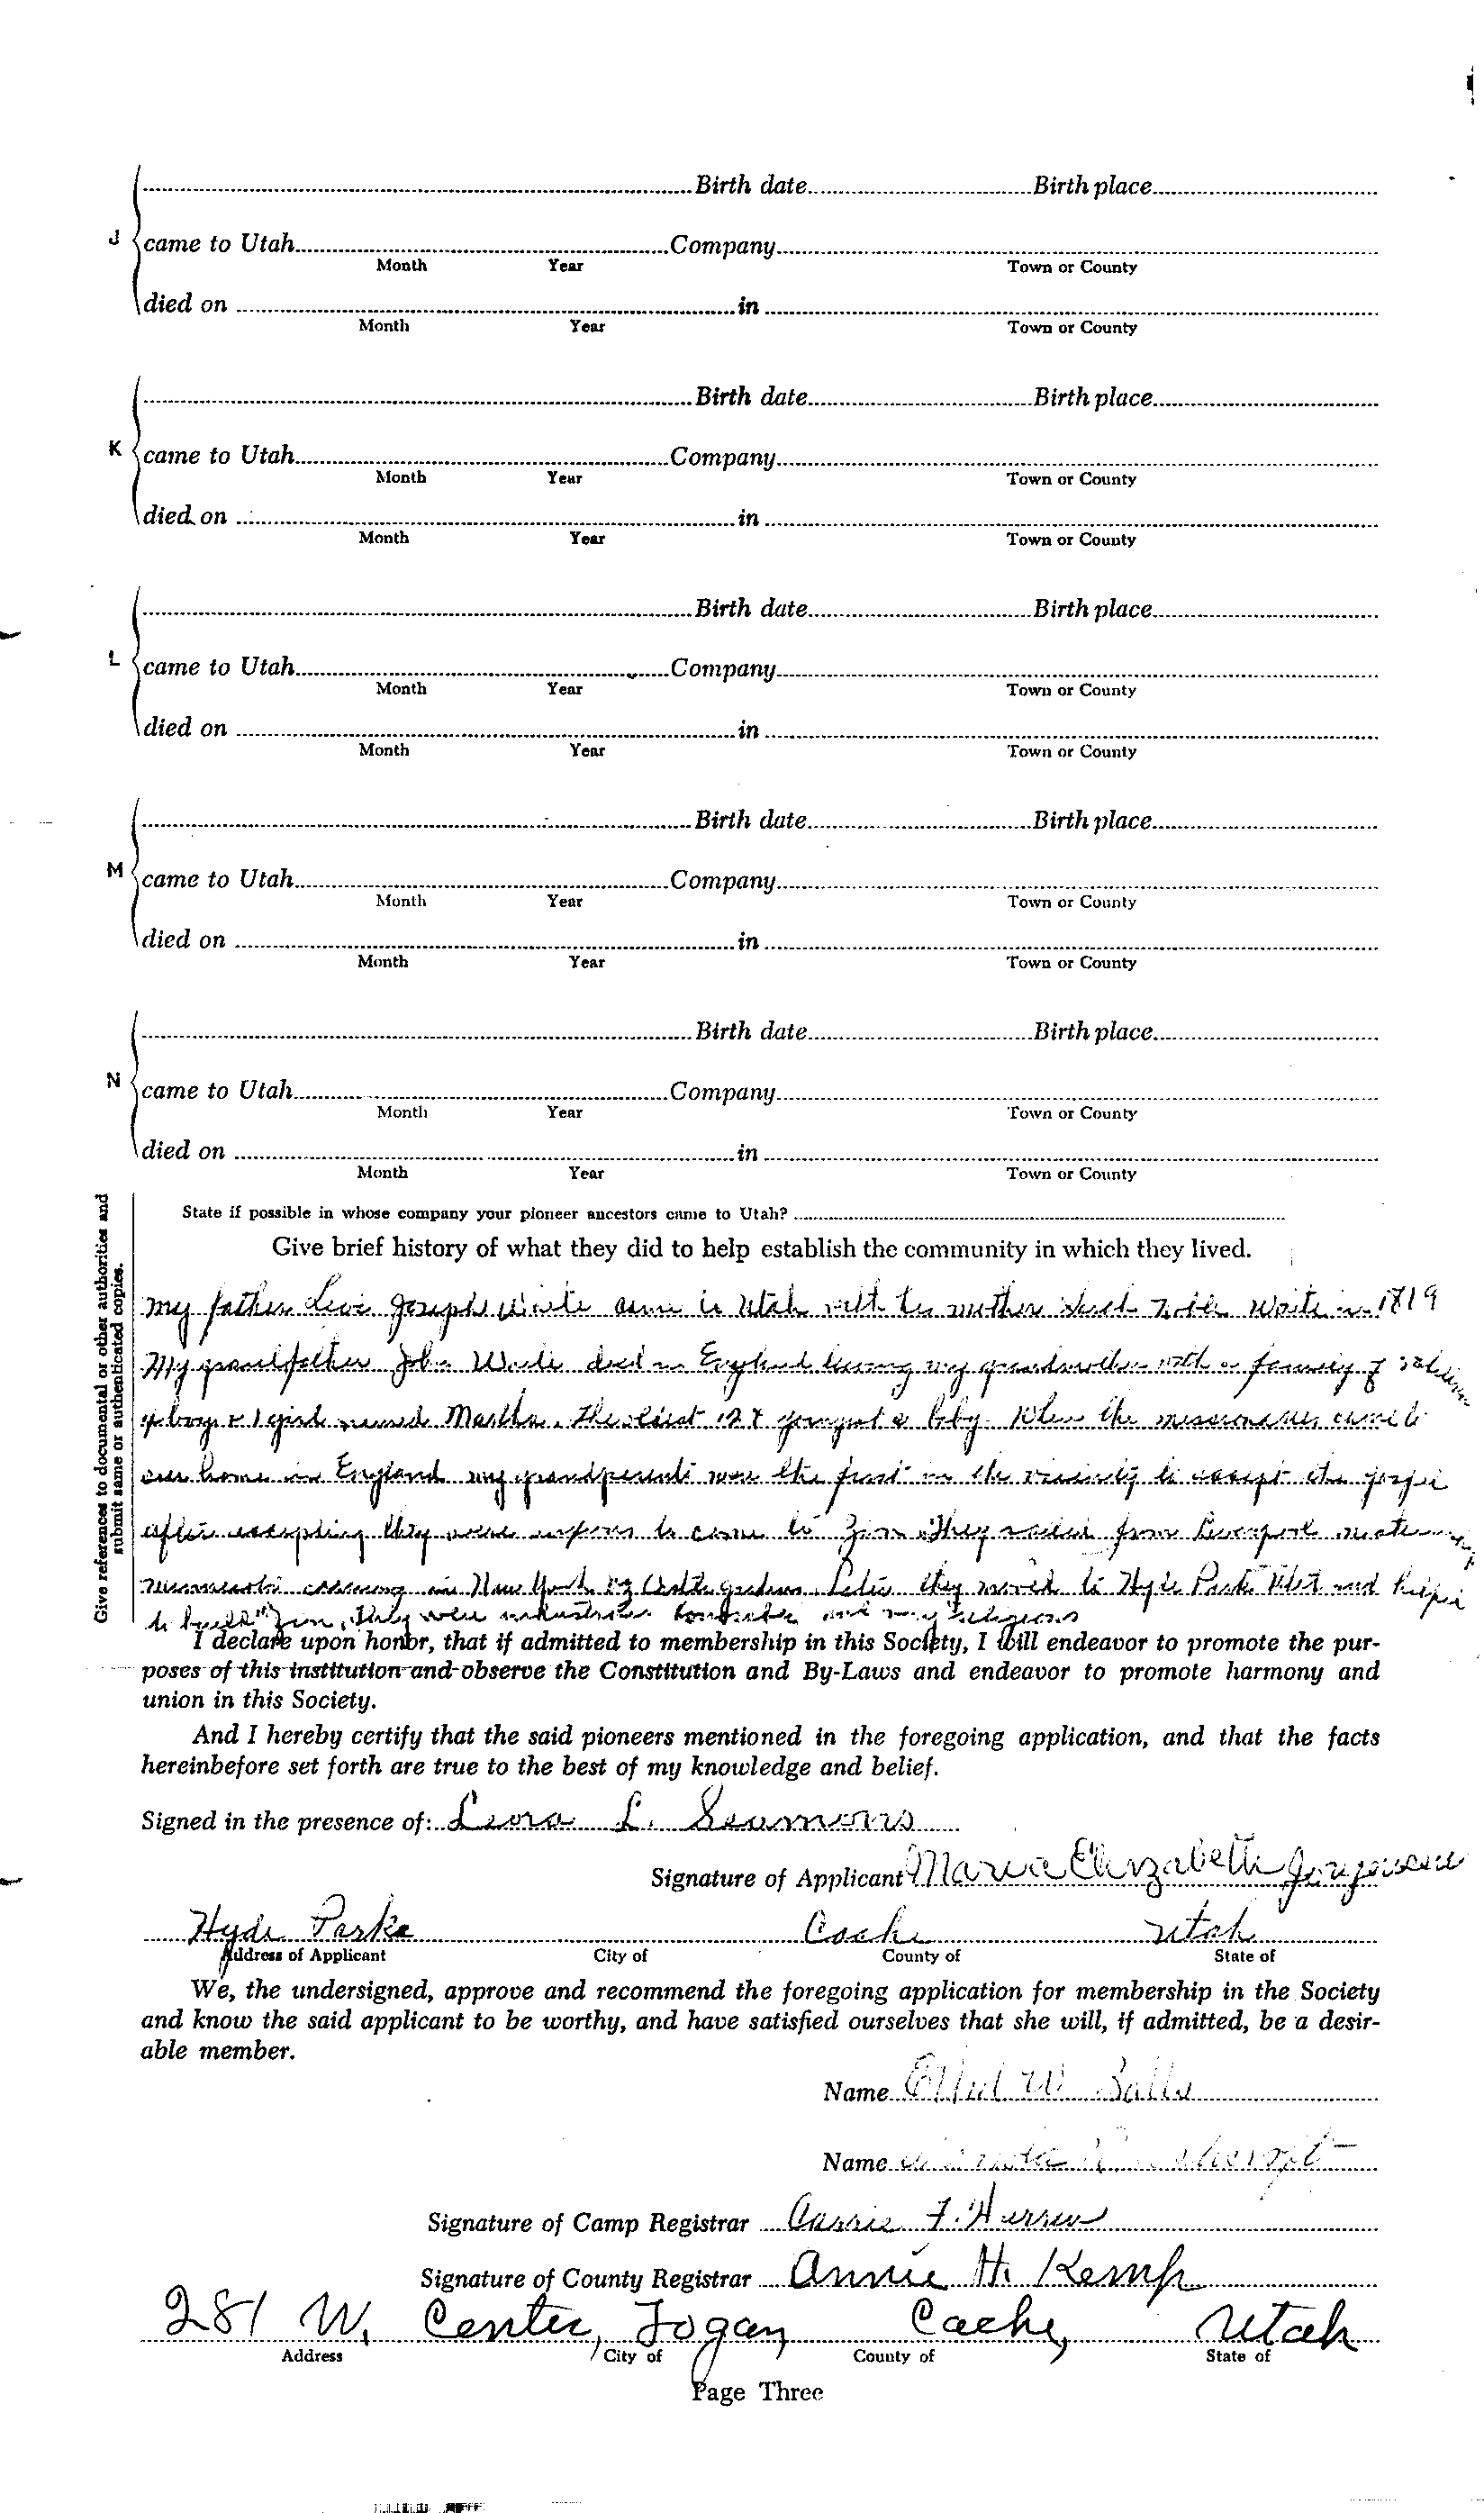 Birth date Birth place
J came to Utah Company
Month Year Town or County
died on in
Month Year Town or County
Birth date Birth place
K came to Utah Company
Month Year Town or County
died on in
Month Year Town or County
Birth date Birth place
L came to Utah Company
Month Year Town or County
died on in
Month Year Town or County
Birth date Birth place
M came to Utah Company
Month Year Town or County
died on in
Month Year Town or County
Birth date Birth place
N came to Utah Company
Month Year Town or County
died on in
Month Year Town or County
Give references to documental or other authorities and
submit same or authenticated copies.
State if possible in whose company your pioneer ancestors came to Utah?
Give brief history of what they did to help establish the community in which they lived.
My father Levi Joseph came to Utah with his mother in 1819
My grandfather John died in England leaving my grandmother with a family of
4 boys & 1 girl named Martha. The eldest 12 & youngest a baby. When the missionaries came to
our home in England my grandparents were the first in the vicinity to accept the gospel
after accepting they were to come to Zion. They sailed from Liverpool
in New York Later they moved to Hyde Park Utah and helped
to build Zion, they were and very religious
I declare upon honor, that if admitted to membership in this Society, I will endeavor to promote the pur-
poses of this institution and observe the Constitution and By-Laws and endeavor to promote harmony and
union in this Society.
And I hereby certify that the said pioneers mentioned in the foregoing application, and that the facts
hereinbefore set forth are true to the best of my knowledge and belief.
Signed in the presence of: Leora L. Seamons
Signature of Applicant Maria Elizabeth Jorgensen
Hyde Park Cache Utah
Address of Applicant City of County of State of
We, the undersigned, approve and recommend the foregoing application for membership in the Society
and know the said applicant to be worthy, and have satisfied ourselves that she will, if admitted, be a desir-
able member.
Name Ethel W. Balls
Name
Signature of Camp Registrar Carrie F.
Signature of County Registrar Annie H. Kemp
281 W. Center, Logan Cache, Utah
Address City of County of State of
Page Three